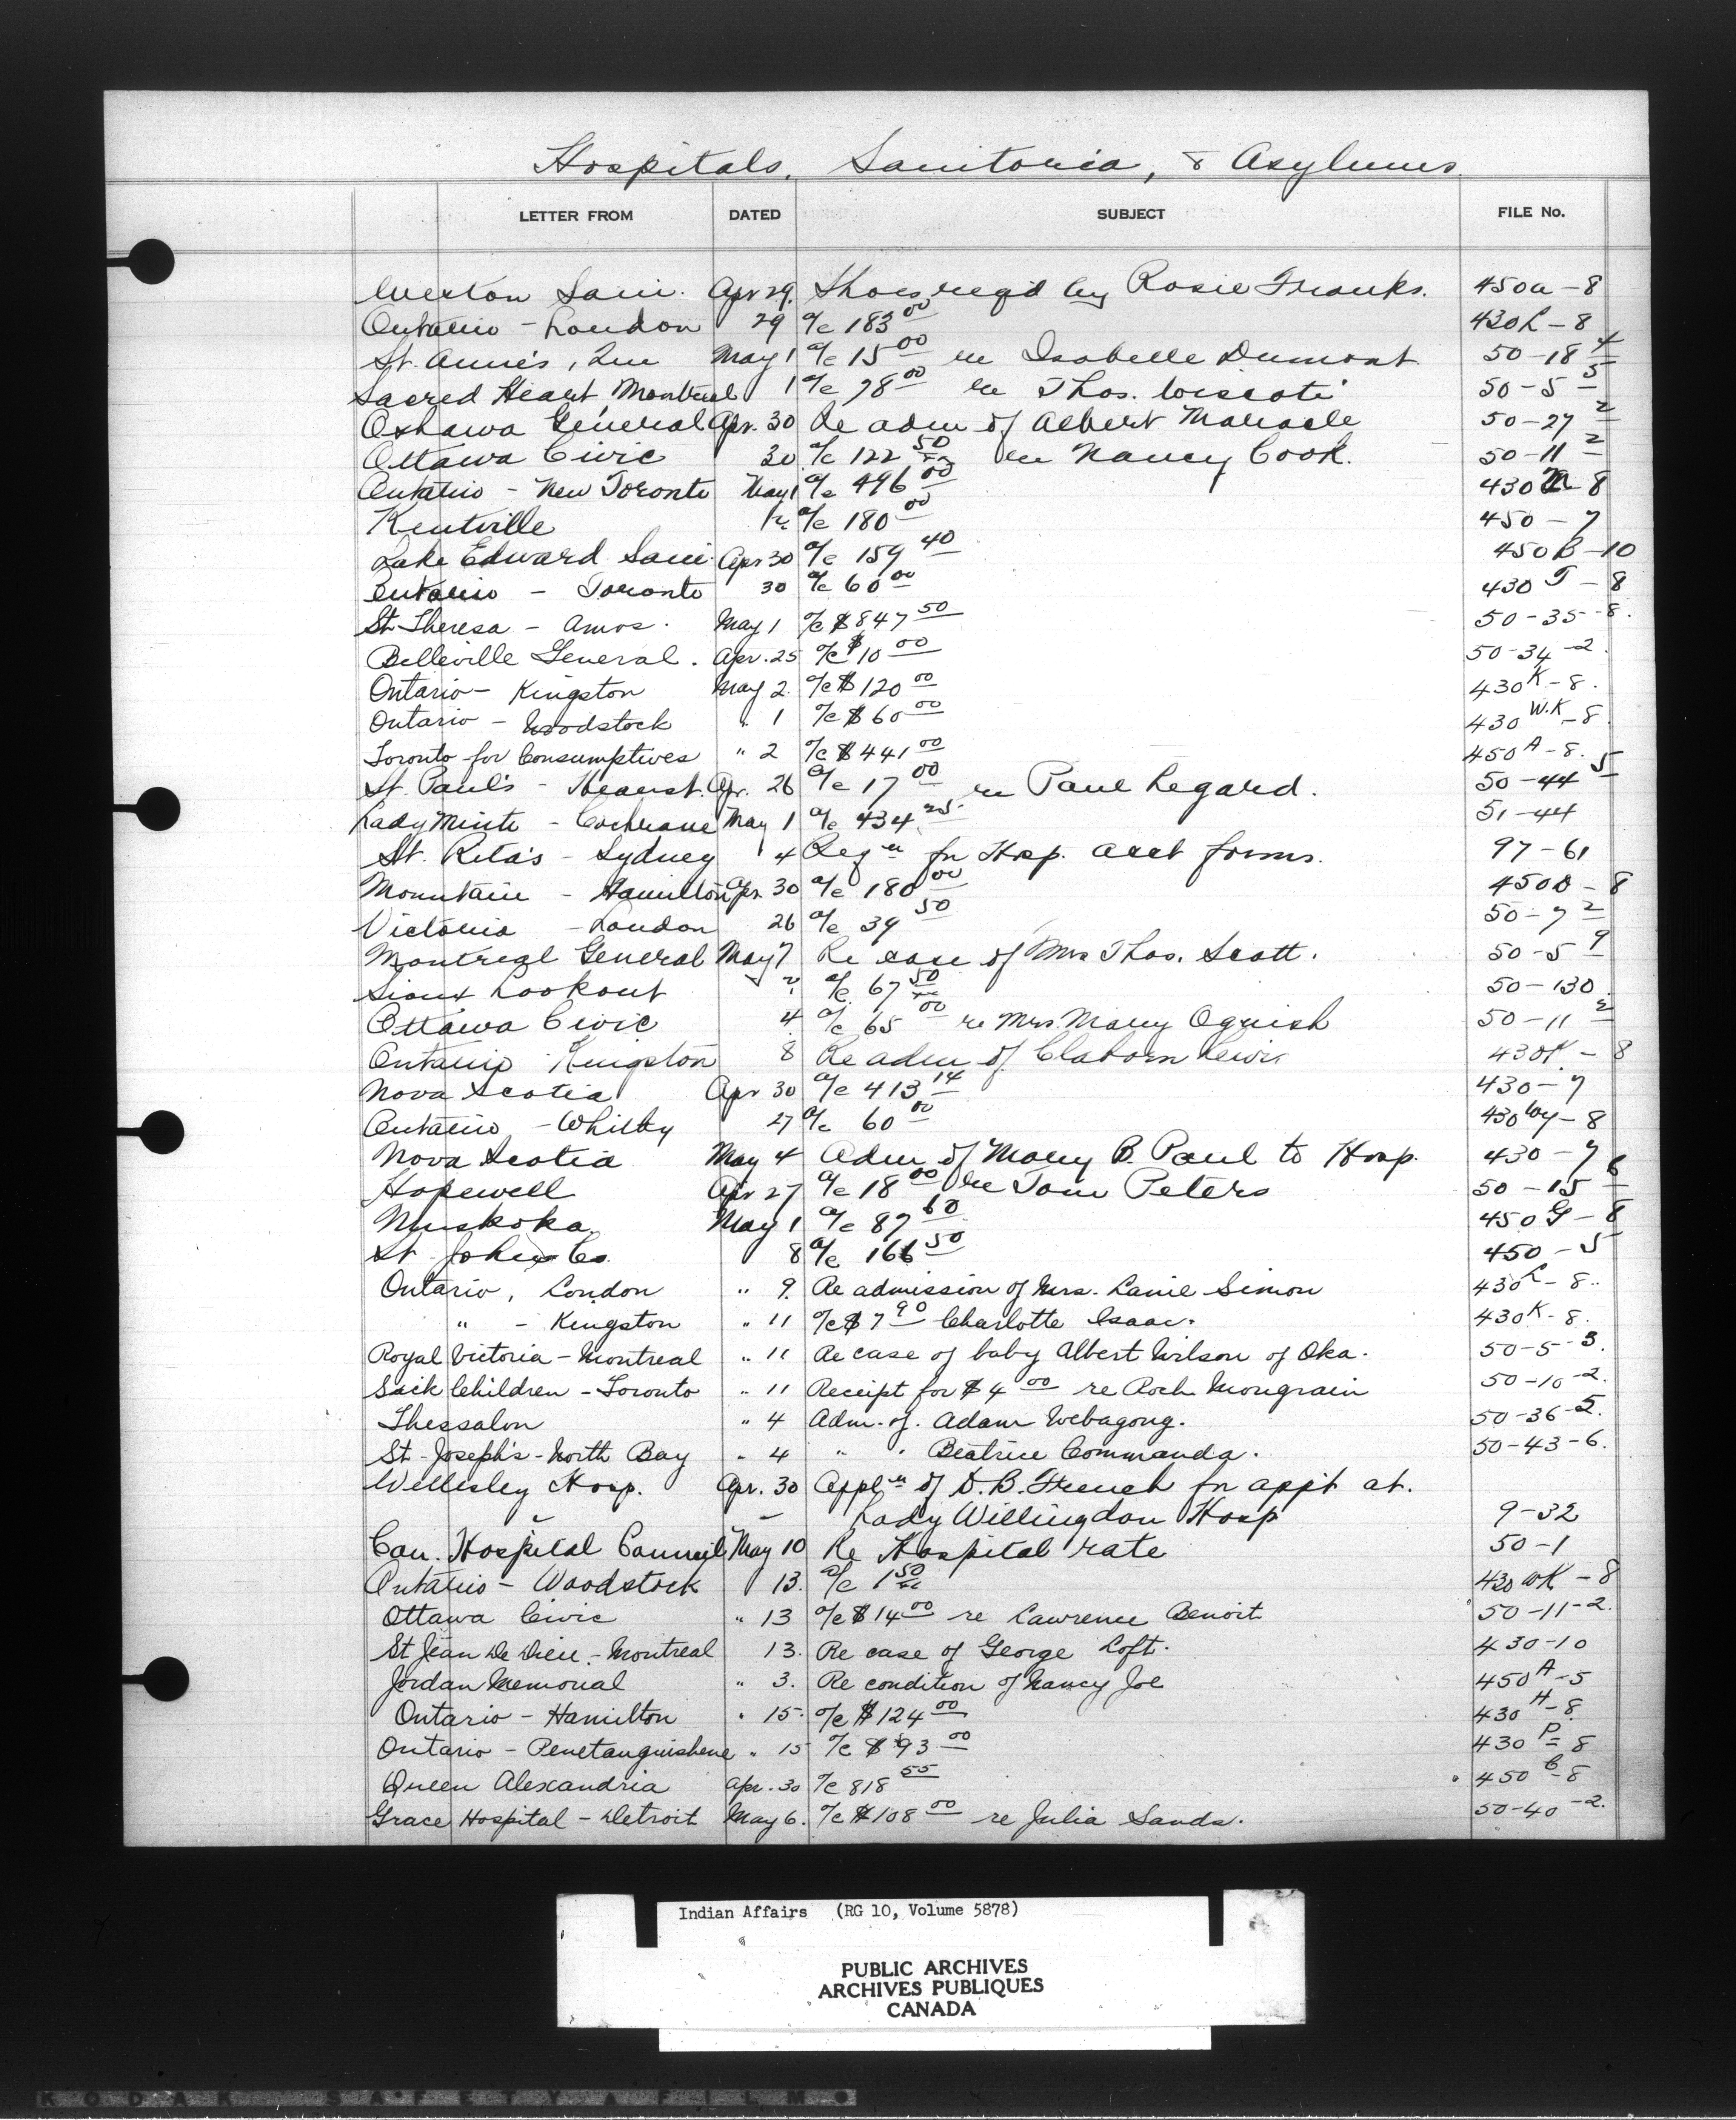 Hospitals, Sanitoria, & Asylums
LETTER FROM DATED SUBJECT FILE No.
Weston Sani. Apr 29. Shoes req'd by Rosie Franks. 450a-8
Ontario - London 29 a/c 183 00 430L-8
St. Anne's, Que May 1 a/c 15 00 re Isabelle Dumont 50-18 4
Sacred Heart, Montreal 1 a/c 78 00 re Thos. 50-5 5
Oshawa General Apr. 30 Re adm of Albert Maracle 50-27 2
Ottawa Civic 30 a/c 122 50 re Nancy Cook. 50-11 2
Ontario - New Toronto May 1 a/c 496 00 430 -8
Kentville a/c 180 00 450-7
Lake Edward Sani. Apr 30 a/c 159 40 450B-10
Ontario - Toronto 30 a/c 60 00 430 T-8
St. Theresa - Amos. May 1 a/c $847 50 50-35-8.
Belleville General. Apr. 25 a/c $10 00 50-34-2.
Ontario - Kingston May 2. a/c $120 00 430 K-8.
Ontario - Woodstock " 1 a/c $60 00 430 W.K-8.
Toronto for Consumptives " 2 a/c $441 00 450 A-8.
St. Paul's - Hearst. Apr. 26 a/c 17 00 re Paul Legard. 50-44 5
Lady Minto - Cochrane May 1 a/c 434 25 51-44
St. Rita's - Sydney 4 Reqn for Hosp. acct forms. 97-61
Mountain - Hamilton Apr. 30 a/c 180 00 450D-8
Victoria - London 26 a/c 39 50 50-7 2
Montreal General May 7 Re case of Mrs Thos. Scott. 50-5 9
Sioux Lookout a/c 67 50 50-130
Ottawa Civic 4. a/c 65 00 re Mrs Mary Oguish 50-11 2
Ontario Kingston 8 Re adm of Claborn Lewis 430K-8
Nova Scotia Apr 30 a/c 413 14 430-7
Ontario - Whitby 27 a/c 60 00 430 Wy-8
Nova Scotia May 4 Adm of Mary B. Paul to Hosp. 430-7
Hopewell Apr 27 a/c 18 00 re Tom Peters 50-15 6
Muskoka. May 1 a/c 87 60 450 G-8
St John Co. 8 a/c 166 50 450-5
Ontario, London " 9. Re admission of Mrs. Lanie Simon 430 L-8.
" - Kingston " 11 a/c $7 90 Charlotte Isaac. 430 K-8.
Royal Victoria - Montreal " 11 Re case of baby Albert Wilson of Oka. 50-5-3.
Sick Children - Toronto " 11 Receipt for $4 00 re Roch Mongrain 50-10-2.
Thessalon " 4 Adm. of. Adam Webagong. 50-36-5.
St-Joseph's - North Bay " 4 " " Beatrice Commanda. 50-43-6.
Wellesley Hosp. Apr. 30 Appln of D. B. French for appt at.
Lady Willingdon Hosp 9-32
Can. Hospital Council May 10 Re Hospital rate 50-1
Ontario - Woodstock 13. a/c 1 50 430 WK-8
Ottawa Civic " 13 a/c $14 00 re Lawrence Benoit 50-11-2.
St Jean De Dieu. - Montreal 13. Re case of George Loft. 430-10
Jordan Memorial " 3. Re condition of Nancy Joe 450 A-5
Ontario - Hamilton " 15. a/c $124 00 430 H-8.
Ontario - Penetanguishene " 15 a/c $93 00 430 P-8
Queen Alexandria Apr. 30 a/c 818 55 450 C-8
Grace Hospital - Detroit May 6. a/c $108 00 re Julia Sands. 50-40-2.
Indian Affairs (RG 10, Volume 5878)
PUBLIC ARCHIVES
ARCHIVES PUBLIQUES
CANADA
KODAK SAFETY FILM